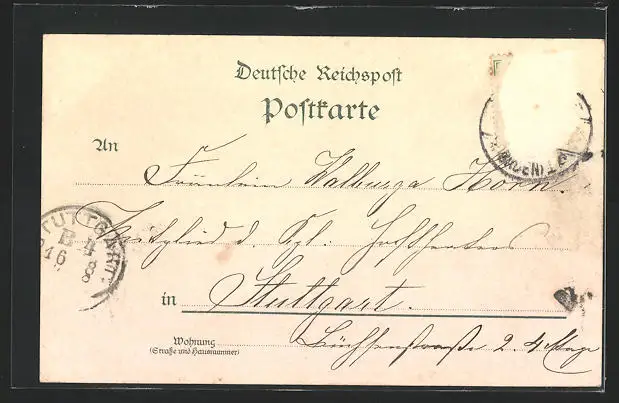 Deutsche Reichspost
Postkarte
An
Fräulein Walburga Horn.
Mitglied d. Kgl. Hoftheaters
in Stuttgart.
Wohnung
(Straße und Hausnummer)
Büchsenstraße 2. 4
STUTTGART
B 4
16
8